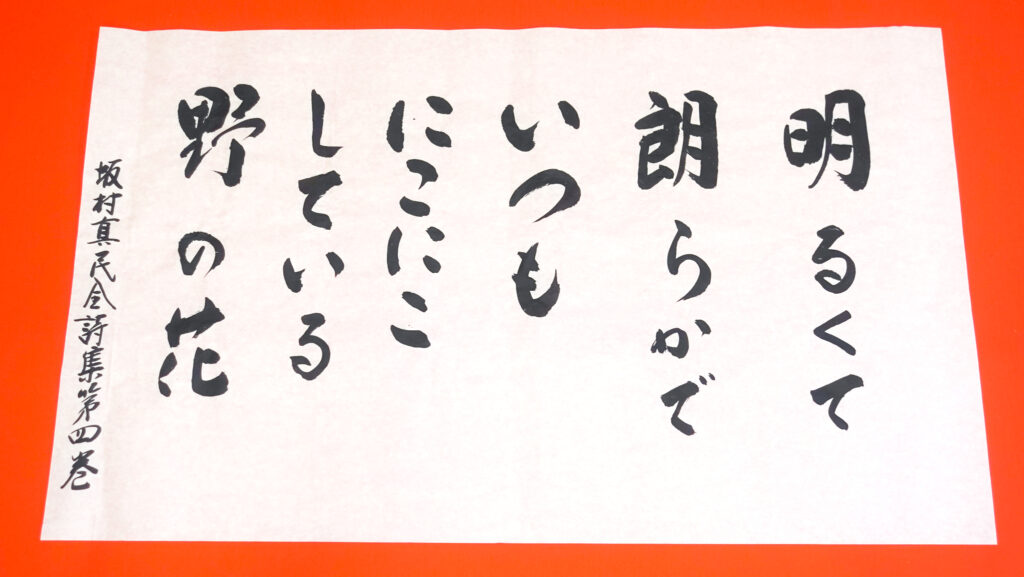 明るくて
朗らかで
いつも
にこにこ
している
野の花
坂村真民全詩集第四巻